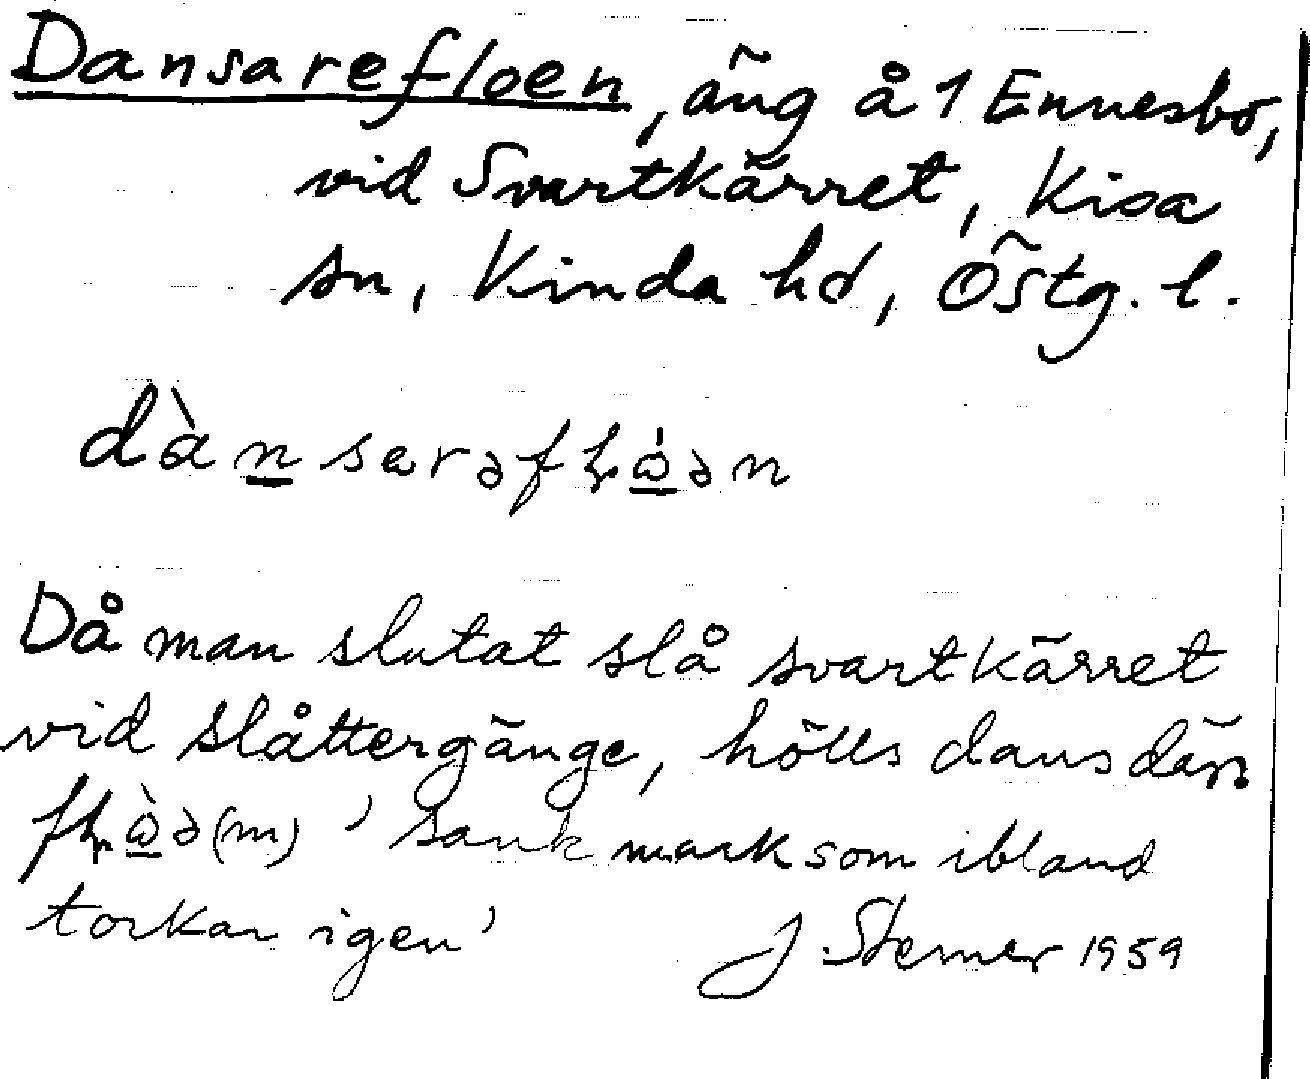 Dansarefloen, äng å 1 Ennesbo,
vid Svartkärret, Kisa
sn, Kinda hd, Östg. l.
Då man slutat slå svartkärret
vid slåttergänge, hölls dans där
(m) 'sank mark som ibland
torkar igen' J. Sterner 1959